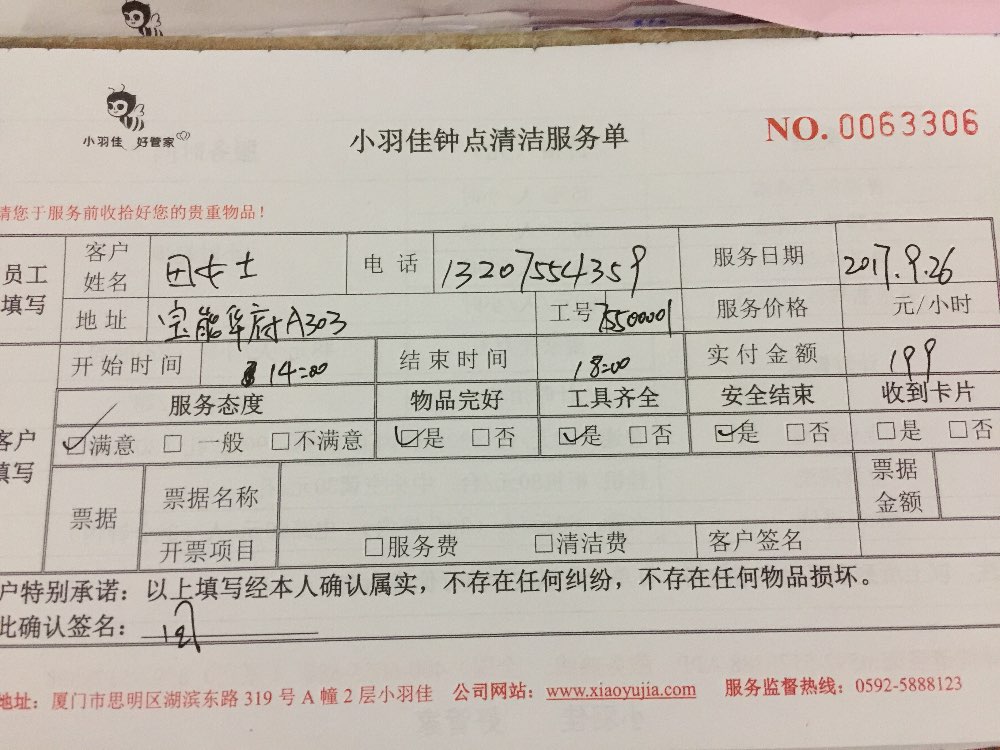 小羽佳 好管家
小羽佳钟点清洁服务单
NO. 0063306
请您于服务前收拾好您的贵重物品！
员工填写 客户姓名 田女士 电话 13207554359 服务日期 2017.9.26
地址 宝能华府A303 工号 7550001 服务价格 元/小时
客户填写 开始时间 14:00 结束时间 18:00 实付金额 199
服务态度 物品完好 工具齐全 安全结束 收到卡片
☑满意 □一般 □不满意 ☑是 □否 ☑是 □否 ☑是 □否 □是 □否
票据 票据名称 票据金额
开票项目 □服务费 □清洁费 客户签名
户特别承诺：以上填写经本人确认属实，不存在任何纠纷，不存在任何物品损坏。
此确认签名：
地址：厦门市思明区湖滨东路319号A幢2层小羽佳 公司网站：www.xiaoyujia.com 服务监督热线：0592-5888123